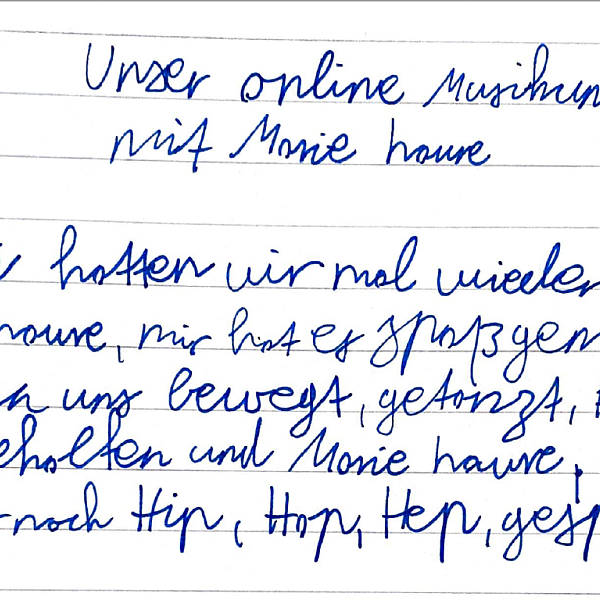 Unser online Musikun
mit Marie haure
hatten wir mal wieder
haure, mir hat es spaßgem
n uns bewegt, getanzt,
ehalten und Marie haure,
noch Hip, Hop, Hep, gesp